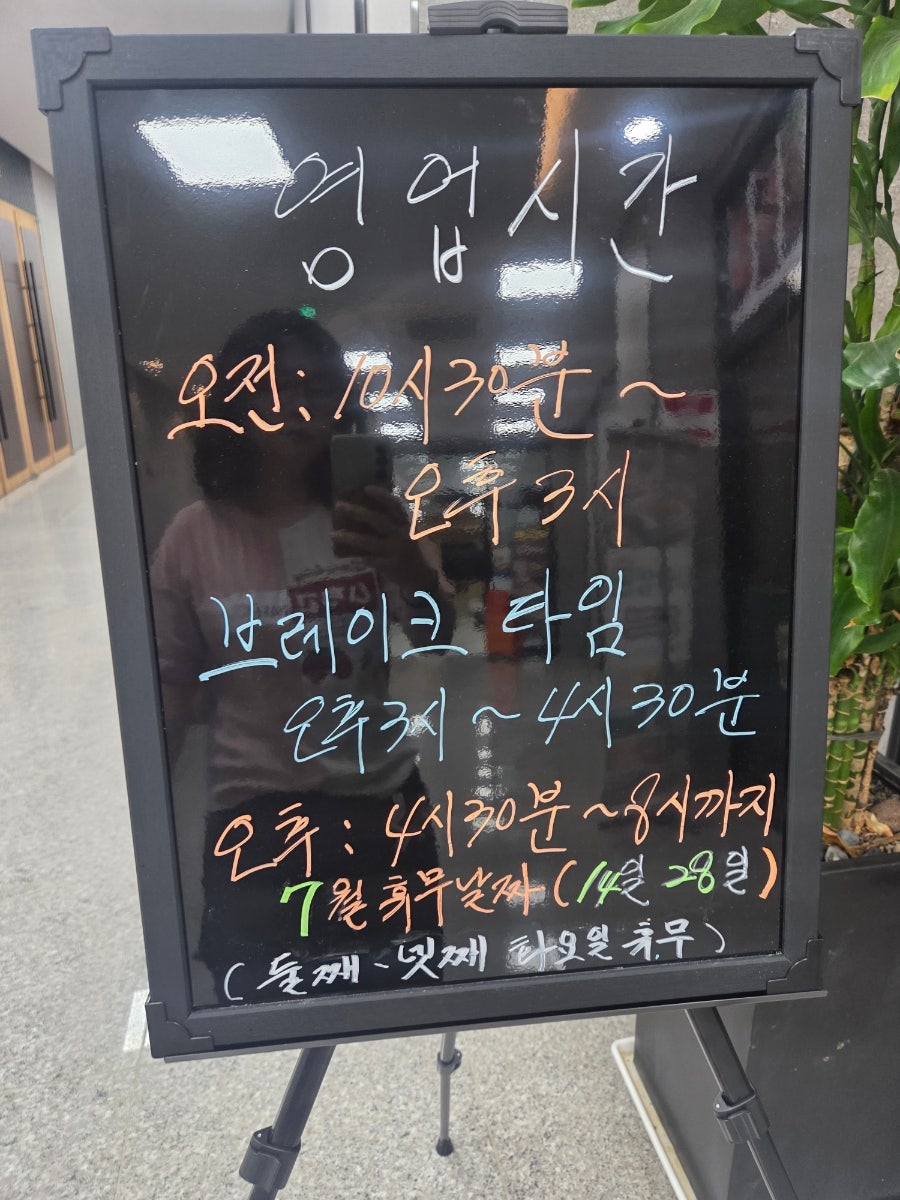 영업시간
오전: 10시30분 ~
오후 3시
브레이크 타임
오후3시 ~ 4시30분
오후: 4시30분 ~ 8시까지
7월 휴무날짜 (14일 28일)
(둘째、넷째 화요일 휴무)